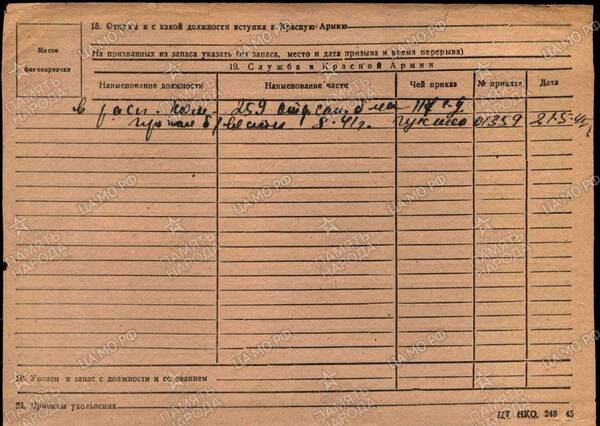 18. Откуда и с какой должности вступил в Красную Армию
Место фотокарточки
На призванных из запаса указать (из запаса, место и дата призыва и время перерыва)
19. Служба в Красной Армии
Наименование должности Наименование части Чей приказ № приказа Дата
в расп. ком. 259 117 с.д.
8-41г. гук нко 01359 21-5-45
20. Уволен в запас с должности и со званием
21. Причины увольнения
ЦТ НКО. 248 45
ЦАМО.РФ
ПАМЯТЬ НАРОДА